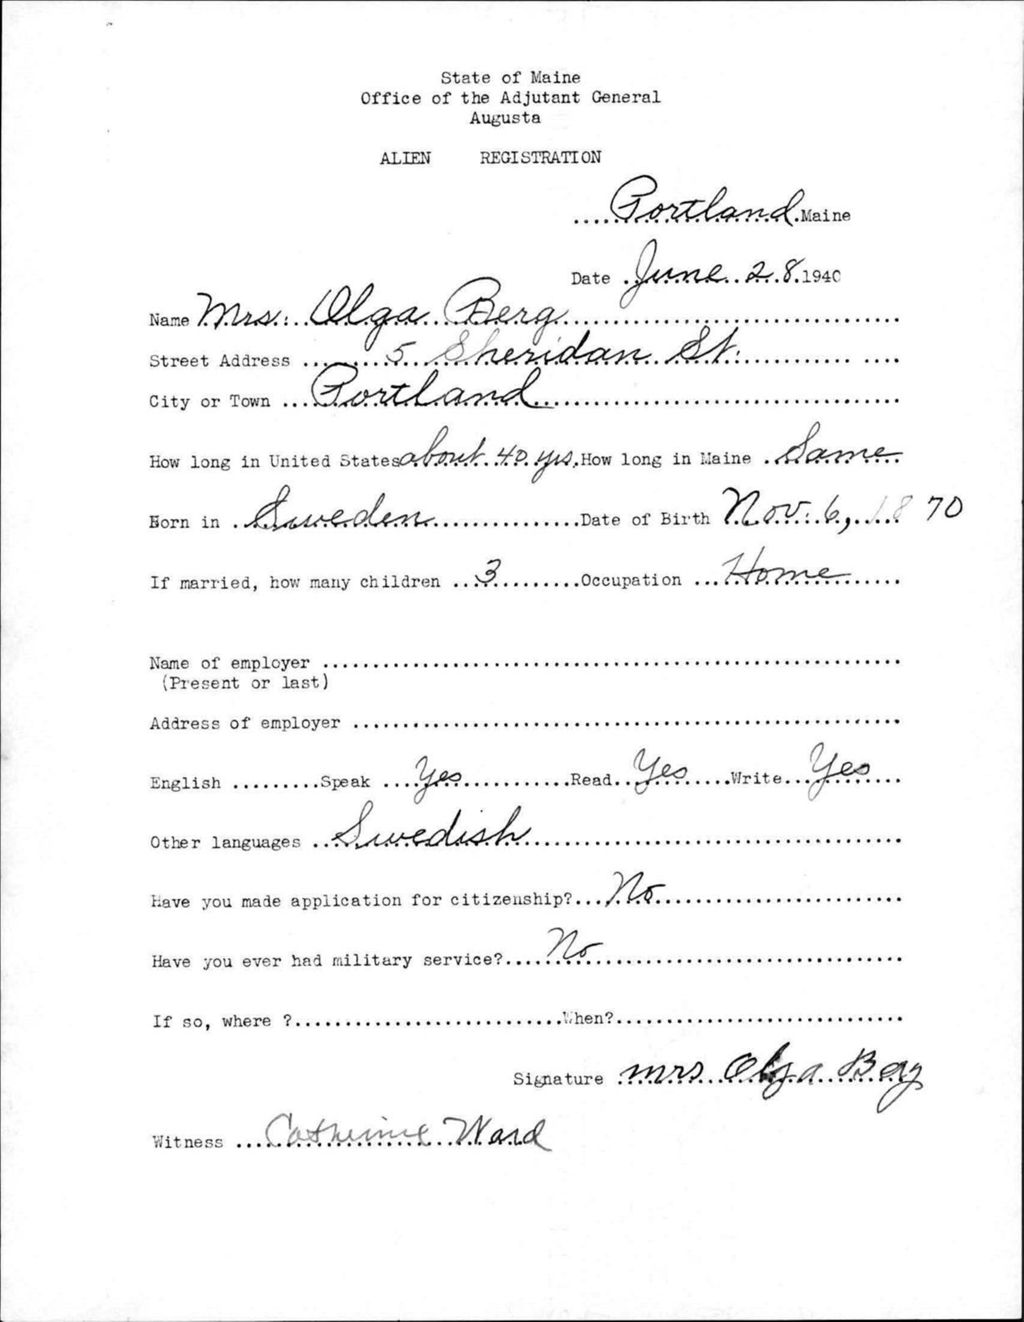 State of Maine
Office of the Adjutant General
Augusta
ALIEN REGISTRATION
....Portland.Maine
Date .June..28.1940
Name Mrs...Olga..Berg...................................
Street Address .......5..Sheridan..St............. ....
City or Town ...Portland...........................................
How long in United States about..40.yrs.How long in Maine .Same..
Born in ..Sweden..................Date of Birth Nov. 6, 1870
If married, how many children ..3..........Occupation ...Home......
Name of employer ......................................................................
(Present or last)
Address of employer ..................................................................
English .........Speak ....Yes.............Read..Yes.....Write...Yes...
Other languages ..Swedish..............................................
Have you made application for citizenship?....No..............................
Have you ever had military service?.....No.....................................
If so, where ?...........................When?..................................
Signature .mrs..Olga..Berg
Witness ...Catherine Ward